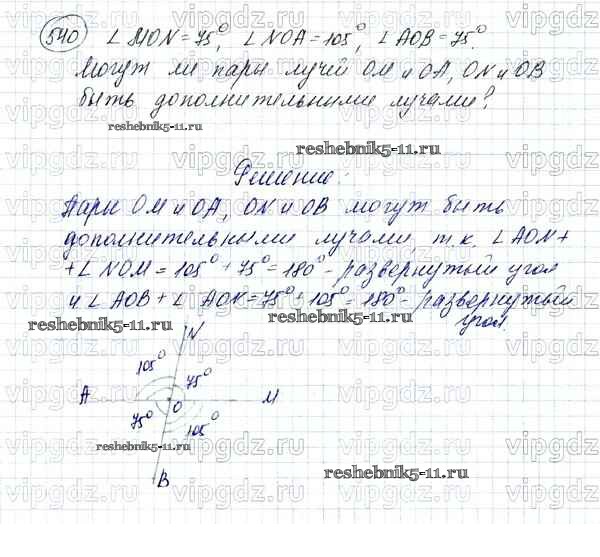 540 ∠ MON = 75°, ∠ NOA = 105°, ∠ AOB = 75°.
Могут ли пары лучей OM и OA, ON и OB
быть дополнительными лучами?
reshebnik5-11.ru
reshebnik5-11.ru
Решение:
Пары OM и OA, ON и OB могут быть
дополнительными лучами, т.к. ∠ AON +
+ ∠ NOM = 105° + 75° = 180° - развернутый угол
и ∠ AOB + ∠ AON = 75° + 105° = 180° - развернутый
угол.
reshebnik5-11.ru
reshebnik5-11.ru
N
105° 75°
A O M
75° 105°
reshebnik5-11.ru
reshebnik5-11.ru
B
vipgdz.ru